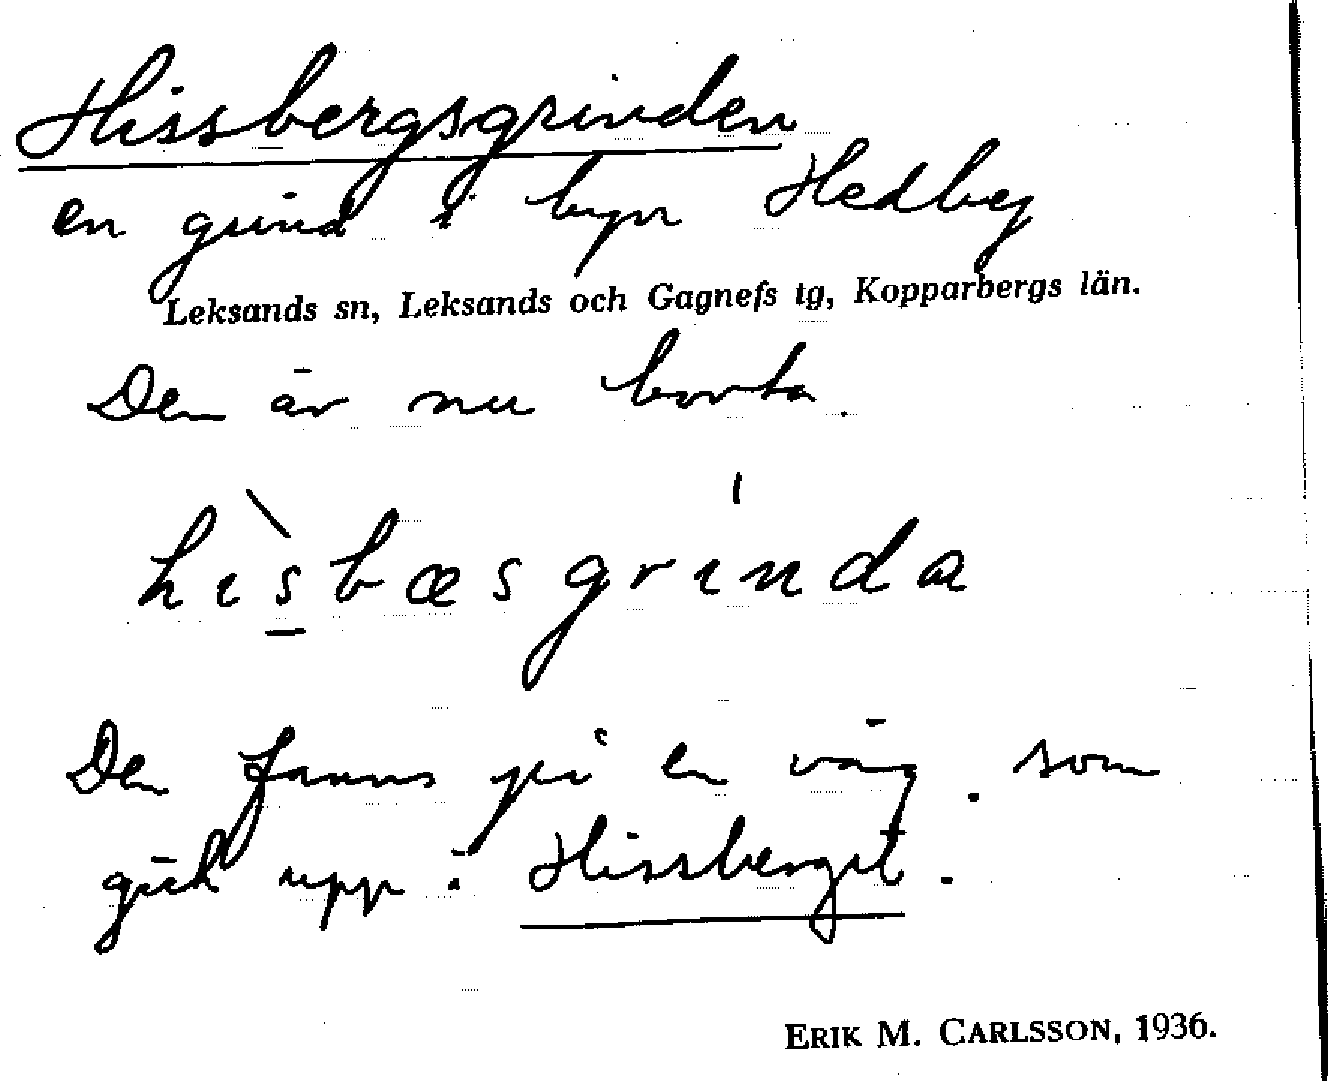 Hissbergsgrinden
en grind i byn Hedby
Leksands sn, Leksands och Gagnefs tg, Kopparbergs län.
Den är nu borta.
hìs̲bæsgrínda
Den fanns på en väg. som
gick upp i Hissberget.
ERIK M. CARLSSON, 1936.